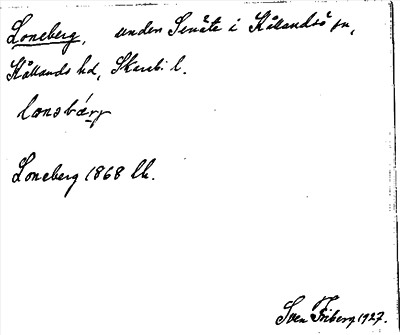 Loneberg, under Senäte i Kållandsö sn,
Kållands hd, Skarab. l.
lonsbärj
Loneberg 1868 lk.
Sven Friberg 1927.